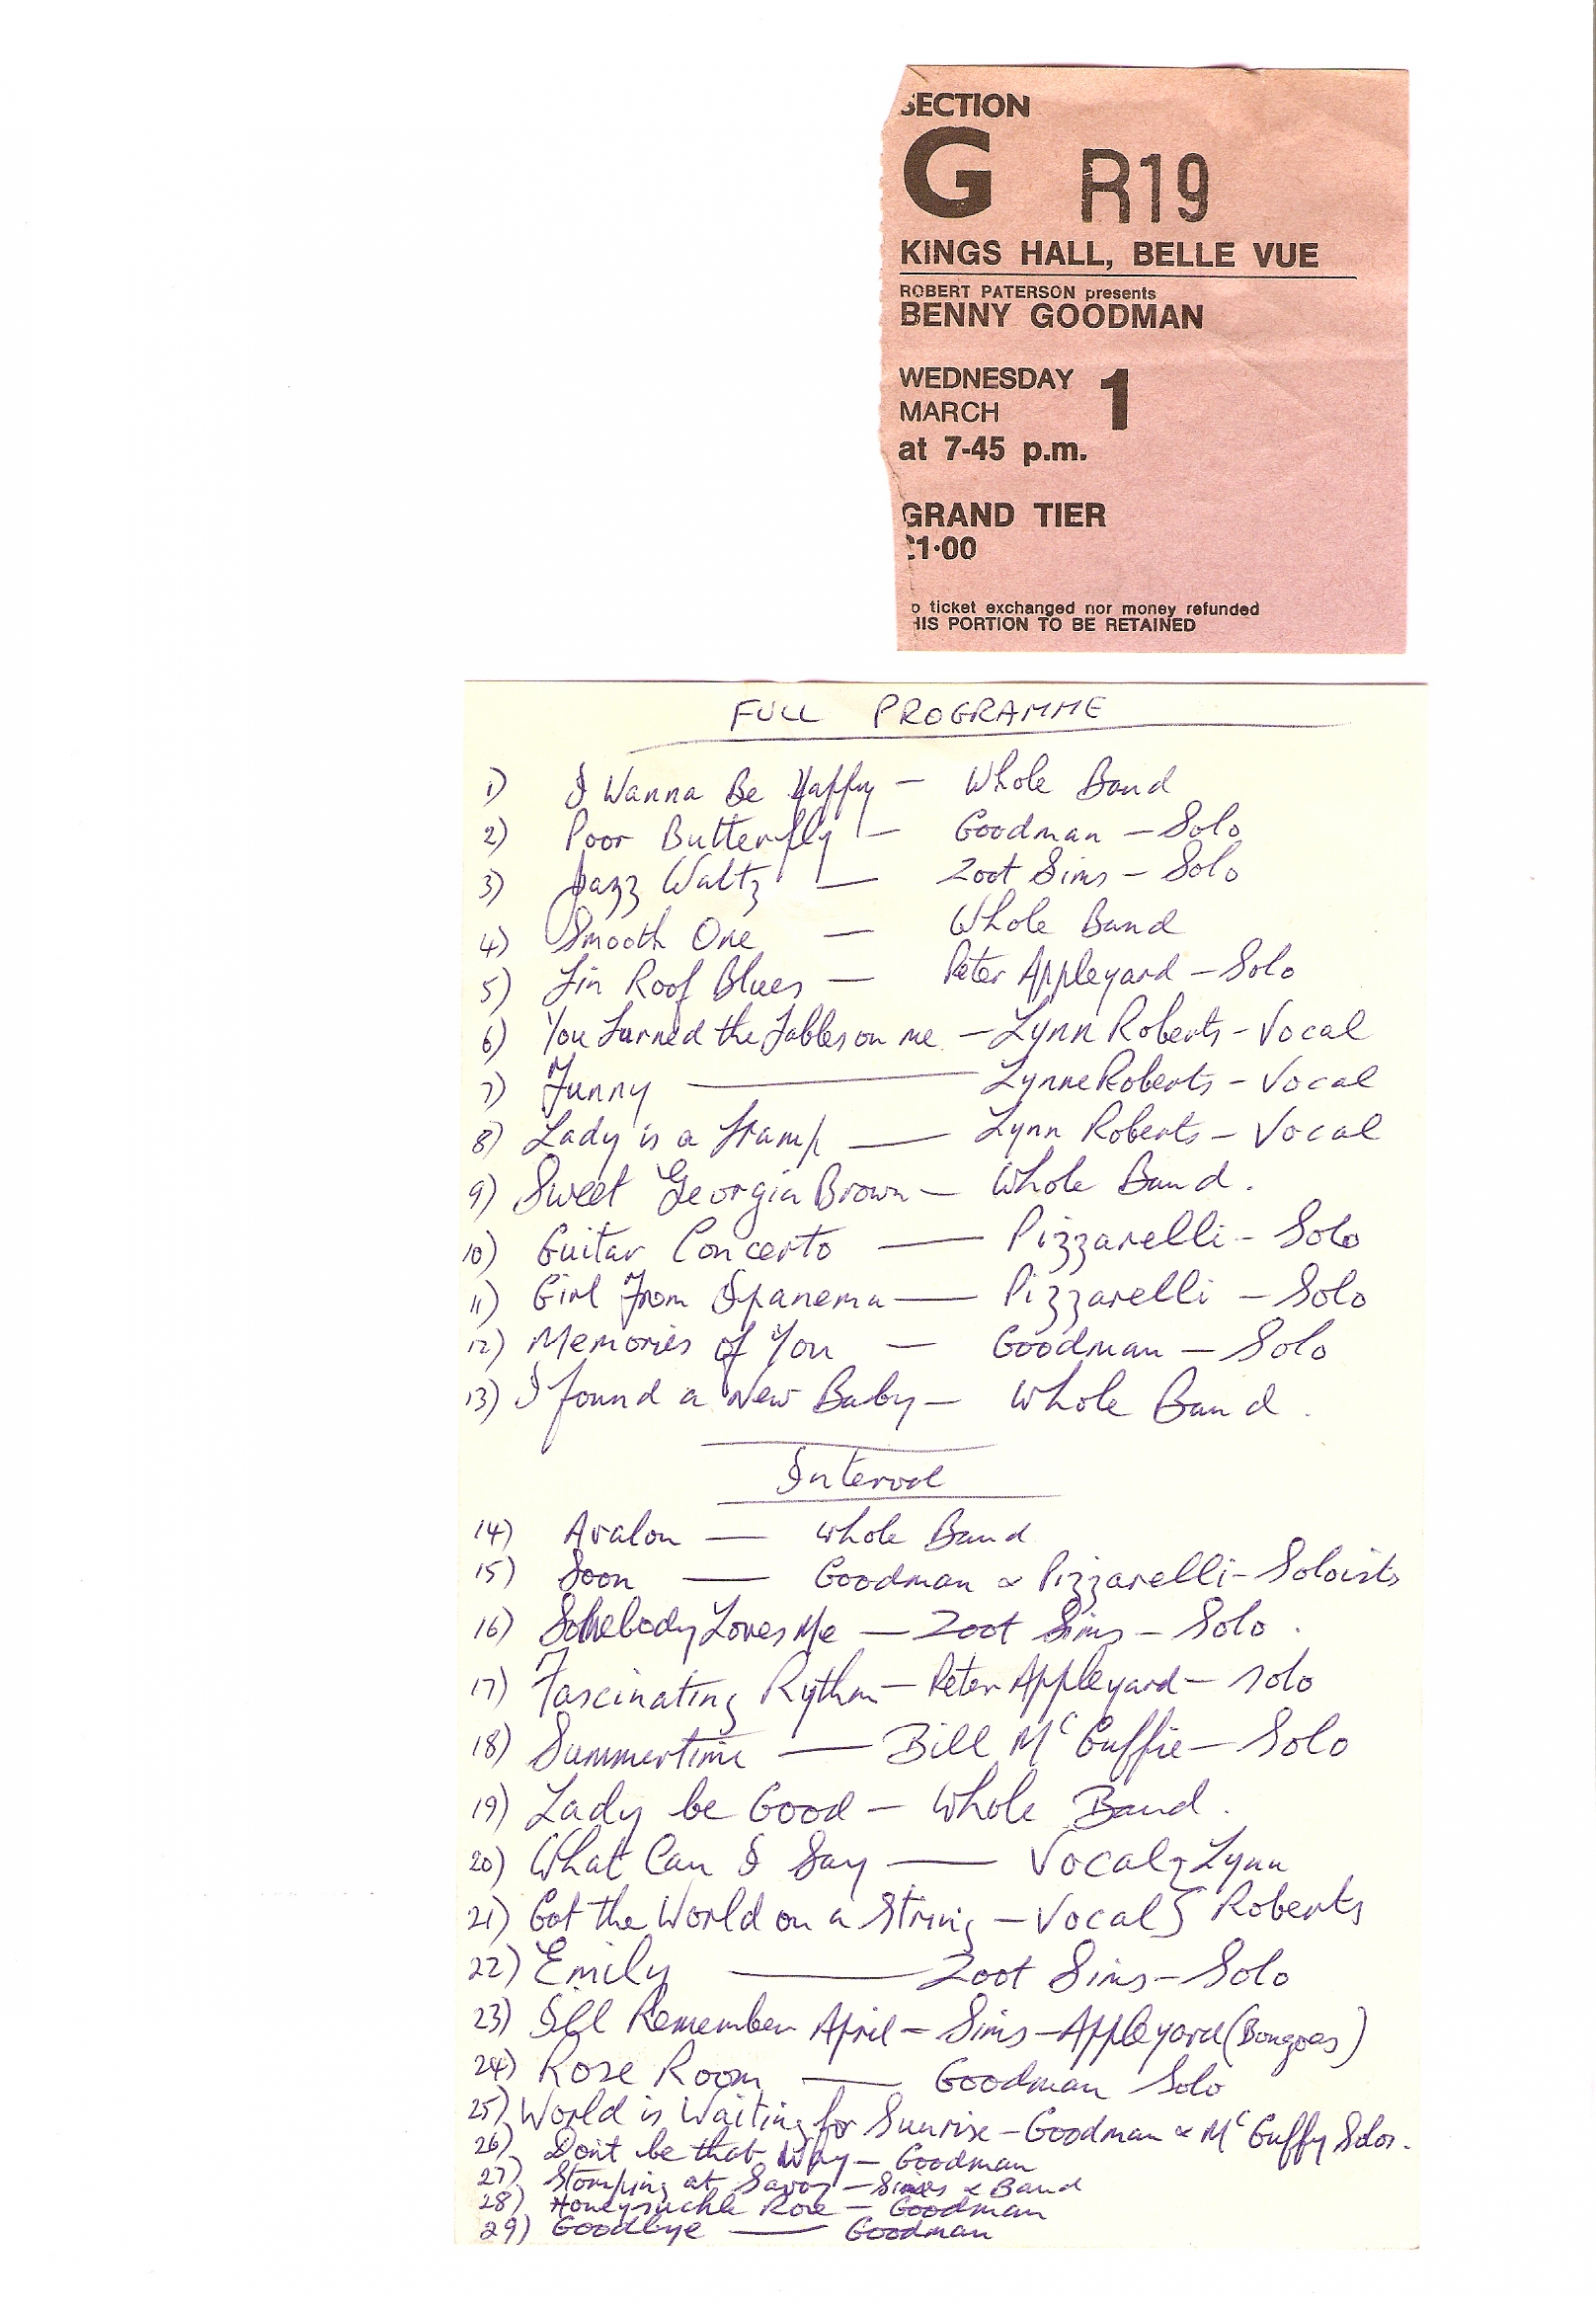 SECTION
G R19
KINGS HALL, BELLE VUE
ROBERT PATERSON presents
BENNY GOODMAN
WEDNESDAY 1
MARCH
at 7-45 p.m.
GRAND TIER
£1·00
o ticket exchanged nor money refunded
HIS PORTION TO BE RETAINED
FULL PROGRAMME
1) I Wanna Be Happy - Whole Band
2) Poor Butterfly - Goodman - Solo
3) Jazz Waltz - Zoot Sims - Solo
4) Smooth One - Whole Band
5) Tin Roof Blues - Peter Appleyard - Solo
6) You Turned the Tables on me - Lynn Roberts - Vocal
7) Funny - Lynne Roberts - Vocal
8) Lady is a Tramp - Lynn Roberts - Vocal
9) Sweet Georgia Brown - Whole Band.
10) Guitar Concerto - Pizzarelli - Solo
11) Girl From Ipanema - Pizzarelli - Solo
12) Memories of You - Goodman - Solo
13) I found a New Baby - Whole Band.
Interval
14) Avalon - Whole Band
15) Soon - Goodman & Pizzarelli - Soloists
16) Somebody Loves Me - Zoot Sims - Solo.
17) Fascinating Rythm - Peter Appleyard - Solo
18) Summertime - Bill McGuffie - Solo
19) Lady be Good - Whole Band.
20) What Can I Say - Vocal } Lynn
21) Got the World on a String - Vocal } Roberts
22) Emily - Zoot Sims - Solo
23) I'll Remember April - Sims - Appleyard (Bongoes)
24) Rose Room - Goodman Solo
25) World is Waiting for Sunrise - Goodman & McGuffy Solos.
26) Don't be that Way - Goodman
27) Stomping at Savoy - Sims & Band
28) Honeysuckle Rose - Goodman
29) Goodbye - Goodman